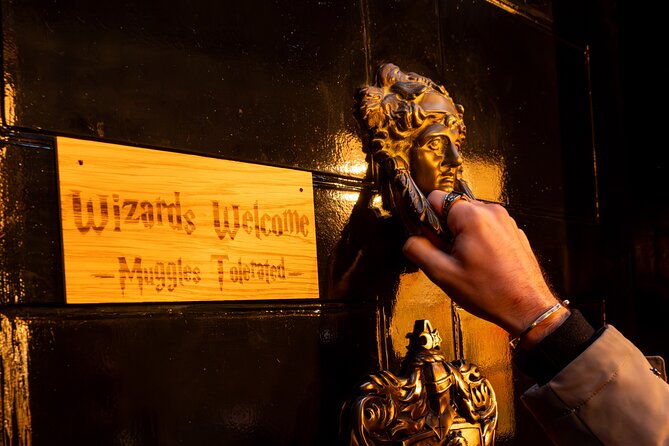 Wizards Welcome
- Muggles Tolerated -